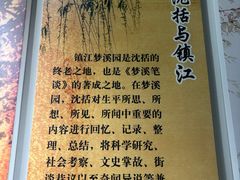 沈括与镇江
镇江梦溪园是沈括的
终老之地,也是《梦溪笔
谈》的著成之地。在梦溪
园,沈括对生平所思、所
想、所见、所闻中重要的
内容进行回忆、记录、整
理、总结,将科学研究、
社会考察、文史掌故、街
谈巷议以至奇闻异说等兼